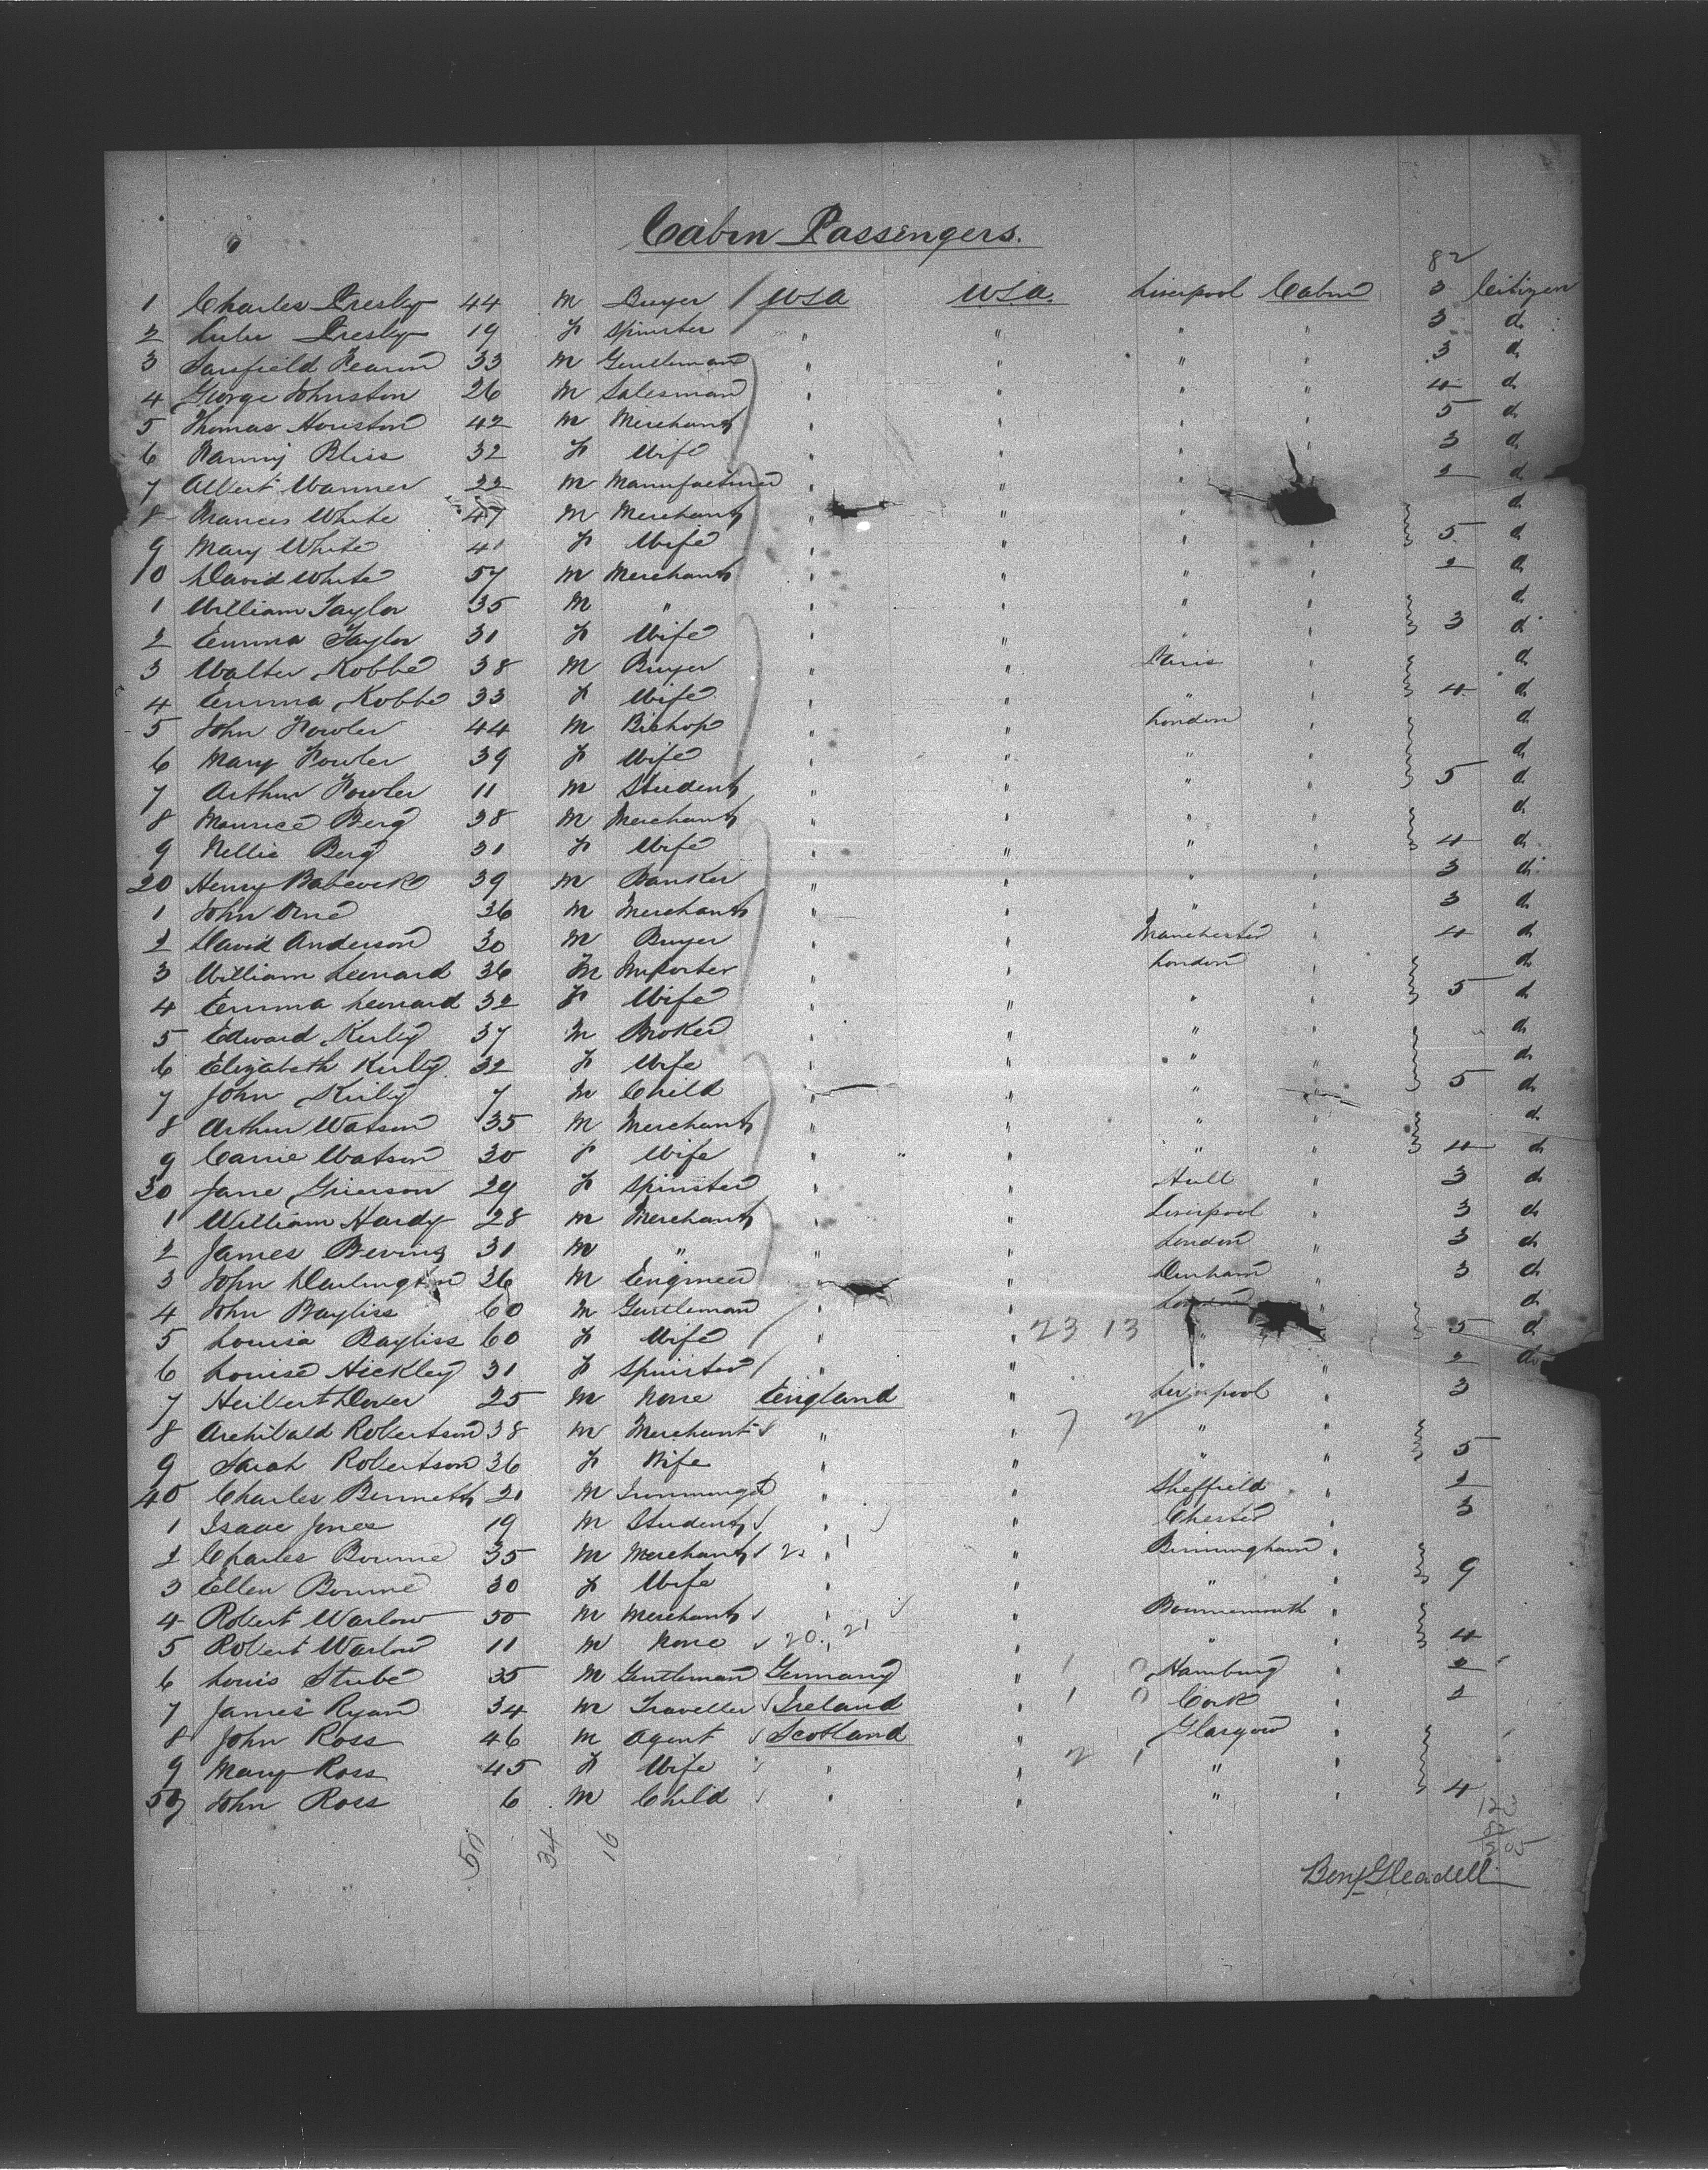 Cabin Passengers.
82
1 Charles Presley 44 M Buyer USA USA. Liverpool Cabin 3 Citizen
2 Presley 19 F Spinster " " " " 3 do
3 Sarsfield Kearon 33 M Gentleman " " " " 3 do
4 George Johnston 26 M Salesman " " " " 4 do
5 Thomas Houston 42 M Merchant " " " " 5 do
6 Fanny Bliss 32 F Wife " " " " 3 do
7 Albert Wanner 22 M Manufacturer " " " 2 do
8 Frances White 47 M Merchant " " do
9 Mary White 41 F Wife " " " " 5 do
10 David White 57 M Merchant " " " " 2 do
1 William Taylor 35 M " " " " " do
2 Emma Taylor 31 F Wife " " " " 3 do
3 Walter Kobbé 38 M Buyer " " Paris " do
4 Emma Kobbé 33 F Wife " " " " 4 do
5 John Fowler 44 M Bishop " " London " do
6 Mary Fowler 39 F Wife " " " " do
7 Arthur Fowler 11 M Student " " " " 5 do
8 Maurice Berg 38 M Merchant " " " " do
9 Nellie Berg 31 F Wife " " " " 4 do
20 Henry Babcock 39 M Banker " " " " 3 do
1 John Orne 36 M Merchant " " " " 3 do
2 David Anderson 30 M Buyer " " Manchester " 4 do
3 William Leonard 36 M Importer " " London " do
4 Emma Leonard 32 F Wife " " " " 5 do
5 Edward Kirby 37 M Broker " " " " do
6 Elizabeth Kirby 32 F Wife " " " " do
7 John Kirby 7 M Child " " " " 5 do
8 Arthur Watson 35 M Merchant " " " " do
9 Carrie Watson 30 F Wife " " " " 4 do
30 Jane Grierson 29 F Spinster " " Hull " 3 do
1 William Hardy 28 M Merchant " " Liverpool " 3 do
2 James Bevins 31 M " " " London " 3 do
3 John Darlington 36 M Engineer " " Durham " 3 do
4 John Bayliss 60 M Gentleman " " London " do
5 Louisa Bayliss 60 F Wife " " 23 13 " 5 do
6 Louise Hickley 31 F Spinster " " " " 2 do
7 Herbert Dover 25 M None England " Liverpool " 3
8 Archibald Robertson 38 M Merchant " " 7 2 " "
9 Sarah Robertson 36 F Wife " " " " 5
40 Charles Bennett 21 M Ironmonger " " Sheffield " 2
1 Isaac Jones 19 M Student " " Chester " 3
2 Charles Bourne 35 M Merchant 2 " " Birmingham "
3 Ellen Bourne 30 F Wife " " " " 9
4 Robert Warlow 50 M Merchant " " Bournemouth "
5 Robert Warlow 11 M None 20 21 " " " 4
6 Louis Stube 35 M Gentleman Germany " 1 0 Hamburg " 2
7 James Ryan 34 M Traveller Ireland " 1 0 Cork " 2
8 John Ross 46 M Agent Scotland " Glasgow "
9 Mary Ross 45 F Wife " " 2 1 " "
50 John Ross 6 M Child " " " " 4
123
82
205
50 34 16
Benj Gleadell